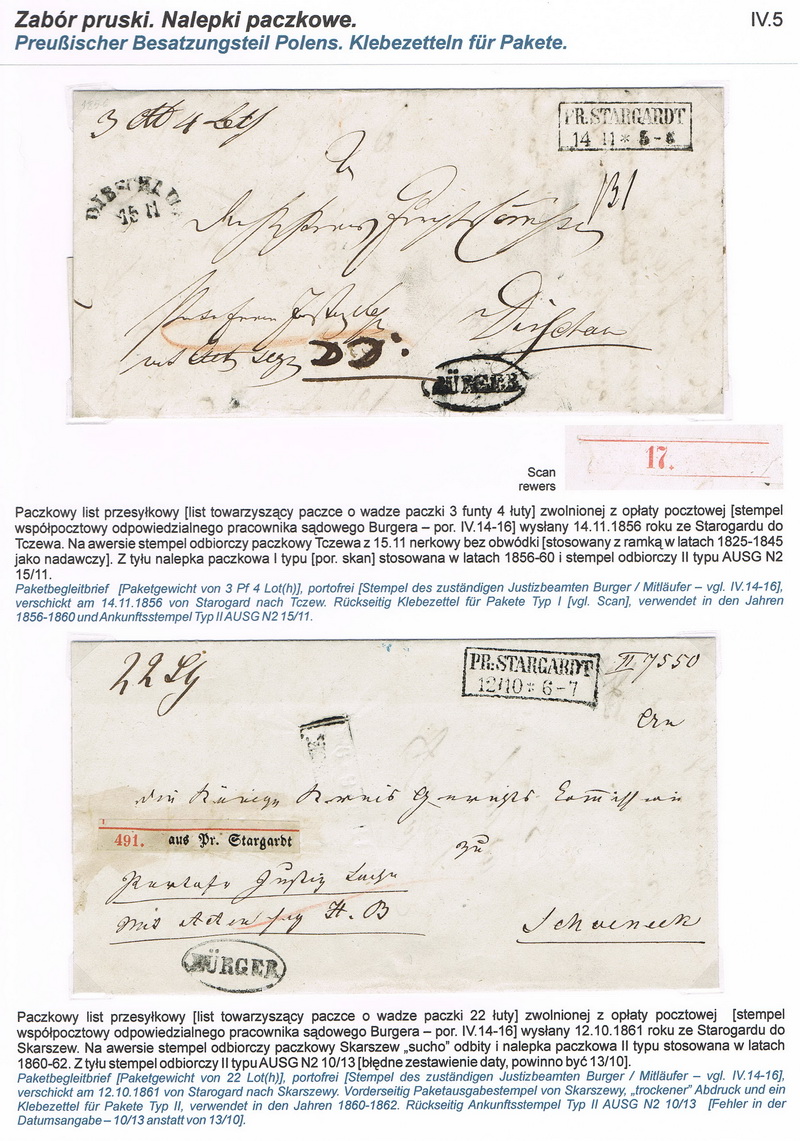 Zabór pruski. Nalepki paczkowe.
IV.5
Preußischer Besatzungsteil Polens. Klebezetteln für Pakete.
1856
PR. STARGARDT
14 11 * 5-6
DIRSCHAU
15 11
Dirschau
BÜRGER
Scan
rewers
17.
Paczkowy list przesyłkowy [list towarzyszący paczce o wadze paczki 3 funty 4 łuty] zwolnionej z opłaty pocztowej [stempel
współpocztowy odpowiedzialnego pracownika sądowego Burgera – por. IV.14-16] wysłany 14.11.1856 roku ze Starogardu do
Tczewa. Na awersie stempel odbiorczy paczkowy Tczewa z 15.11 nerkowy bez obwódki [stosowany z ramką w latach 1825-1845
jako nadawczy]. Z tyłu nalepka paczkowa I typu [por. skan] stosowana w latach 1856-60 i stempel odbiorczy II typu AUSG N2
15/11.
Paketbegleitbrief [Paketgewicht von 3 Pf 4 Lot(h)], portofrei [Stempel des zuständigen Justizbeamten Burger / Mitläufer – vgl. IV.14-16],
verschickt am 14.11.1856 von Starogard nach Tczew. Rückseitig Klebezettel für Pakete Typ I [vgl. Scan], verwendet in den Jahren
1856-1860 und Ankunftsstempel Typ II AUSG N2 15/11.
22 Lth
PR. STARGARDT
12/10 * 6-7
II 7550
An
die Königl Kreis Gerichts Commission
491. aus Pr. Stargardt
zu
Portofr Justiz Sache
mit Acten sig H. B
Schoeneck
BÜRGER
Paczkowy list przesyłkowy [list towarzyszący paczce o wadze paczki 22 łuty] zwolnionej z opłaty pocztowej [stempel
współpocztowy odpowiedzialnego pracownika sądowego Burgera – por. IV.14-16] wysłany 12.10.1861 roku ze Starogardu do
Skarszew. Na awersie stempel odbiorczy paczkowy Skarszew „sucho” odbity i nalepka paczkowa II typu stosowana w latach
1860-62. Z tyłu stempel odbiorczy II typu AUSG N2 10/13 [błędne zestawienie daty, powinno być 13/10].
Paketbegleitbrief [Paketgewicht von 22 Lot(h)], portofrei [Stempel des zuständigen Justizbeamten Burger / Mitläufer – vgl. IV.14-16],
verschickt am 12.10.1861 von Starogard nach Skarszewy. Vorderseitig Paketausgabestempel von Skarszewy, „trockener” Abdruck und ein
Klebezettel für Pakete Typ II, verwendet in den Jahren 1860-1862. Rückseitig Ankunftsstempel Typ II AUSG N2 10/13 [Fehler in der
Datumsangabe – 10/13 anstatt von 13/10].